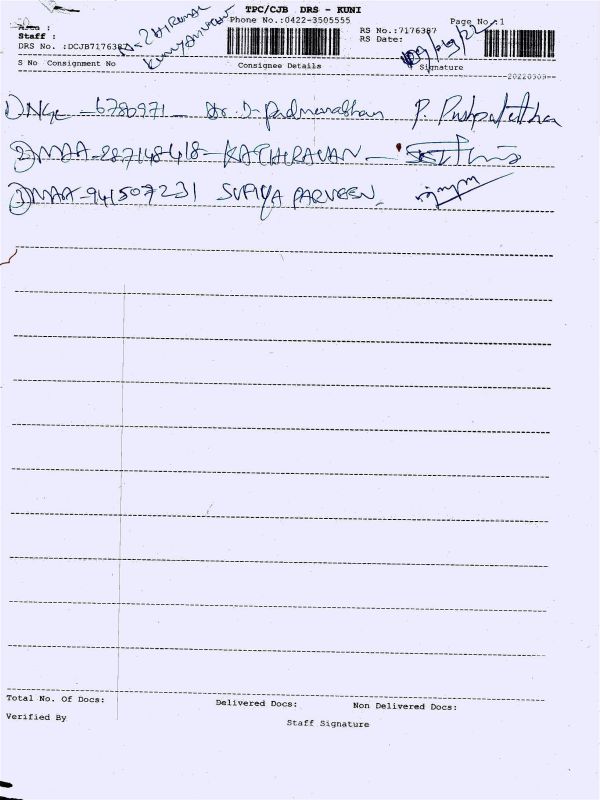 TPC/CJB DRS - KUNI
Area :
Phone No.:0422-3505555
Page No.:1
Staff :
RS No.:7176387
DRS No. :DCJB7176387
RS Date:
09/09/22
S No Consignment No
Consignee Details
Signature
20220909
1) NGL - 6780971 - Dr. I. Padmanabhan P. Pushpalatha
2) MAA - 287148418 - KATHIRAVAN -
3) MAA - 941507231 SUPIYA PARVEEN.
Total No. Of Docs:
Delivered Docs:
Non Delivered Docs:
Verified By
Staff Signature